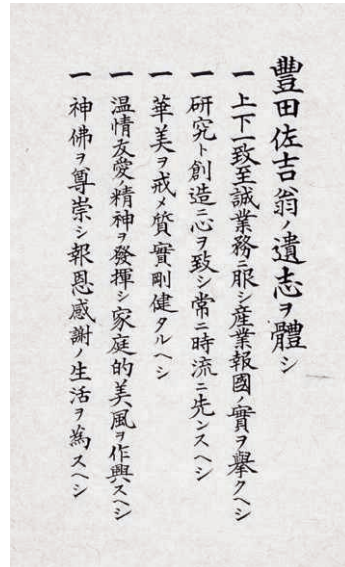 豐田佐吉翁ノ遺志ヲ體シ
一 上下一致至誠業務ニ服シ產業報國ノ實ヲ擧クヘシ
一 研究ト創造ニ心ヲ致シ常ニ時流ニ先ンスヘシ
一 華美ヲ戒メ質實剛健タルヘシ
一 温情友愛ノ精神ヲ發揮シ家庭的美風ヲ作興スヘシ
一 神佛ヲ尊崇シ報恩感謝ノ生活ヲ為スヘシ